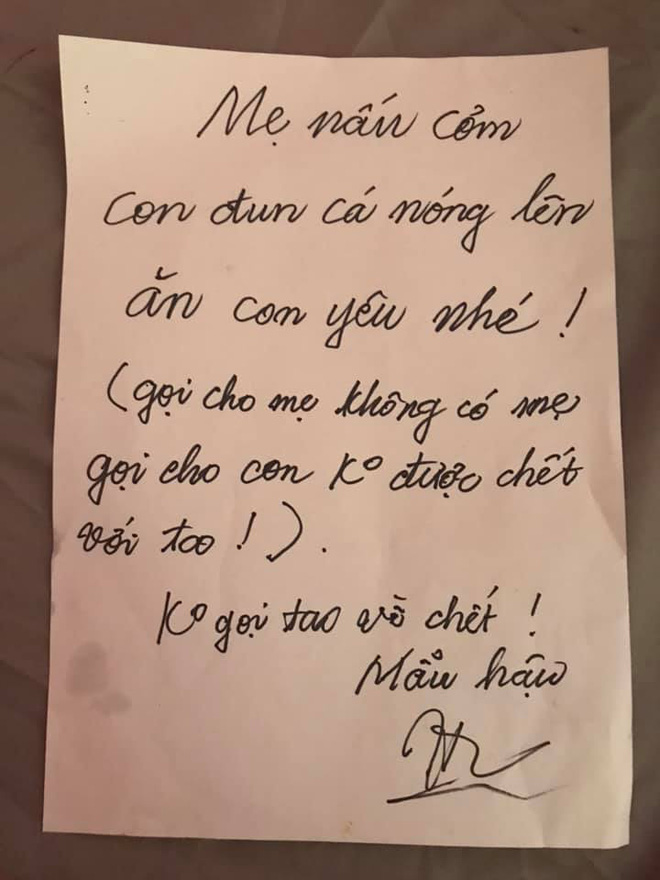 Mẹ nấu cơm
con đun cá nóng lên
ăn con yêu nhé !
(gọi cho mẹ không có mẹ
gọi cho con Ko được chết
với tao !).
Ko gọi tao về chết !
Mẩu hậu